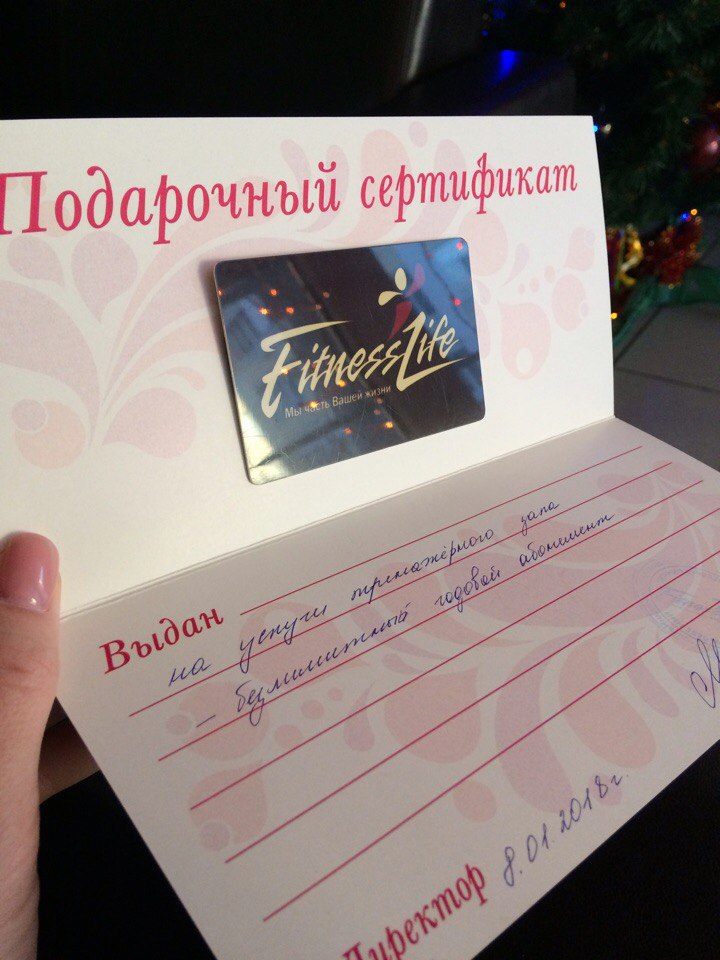 Подарочный сертификат
FitnessLife
Мы часть Вашей жизни
Выдан
на услуги тренажёрного зала
- безлимитный годовой абонемент
Директор 8.01.2018г.